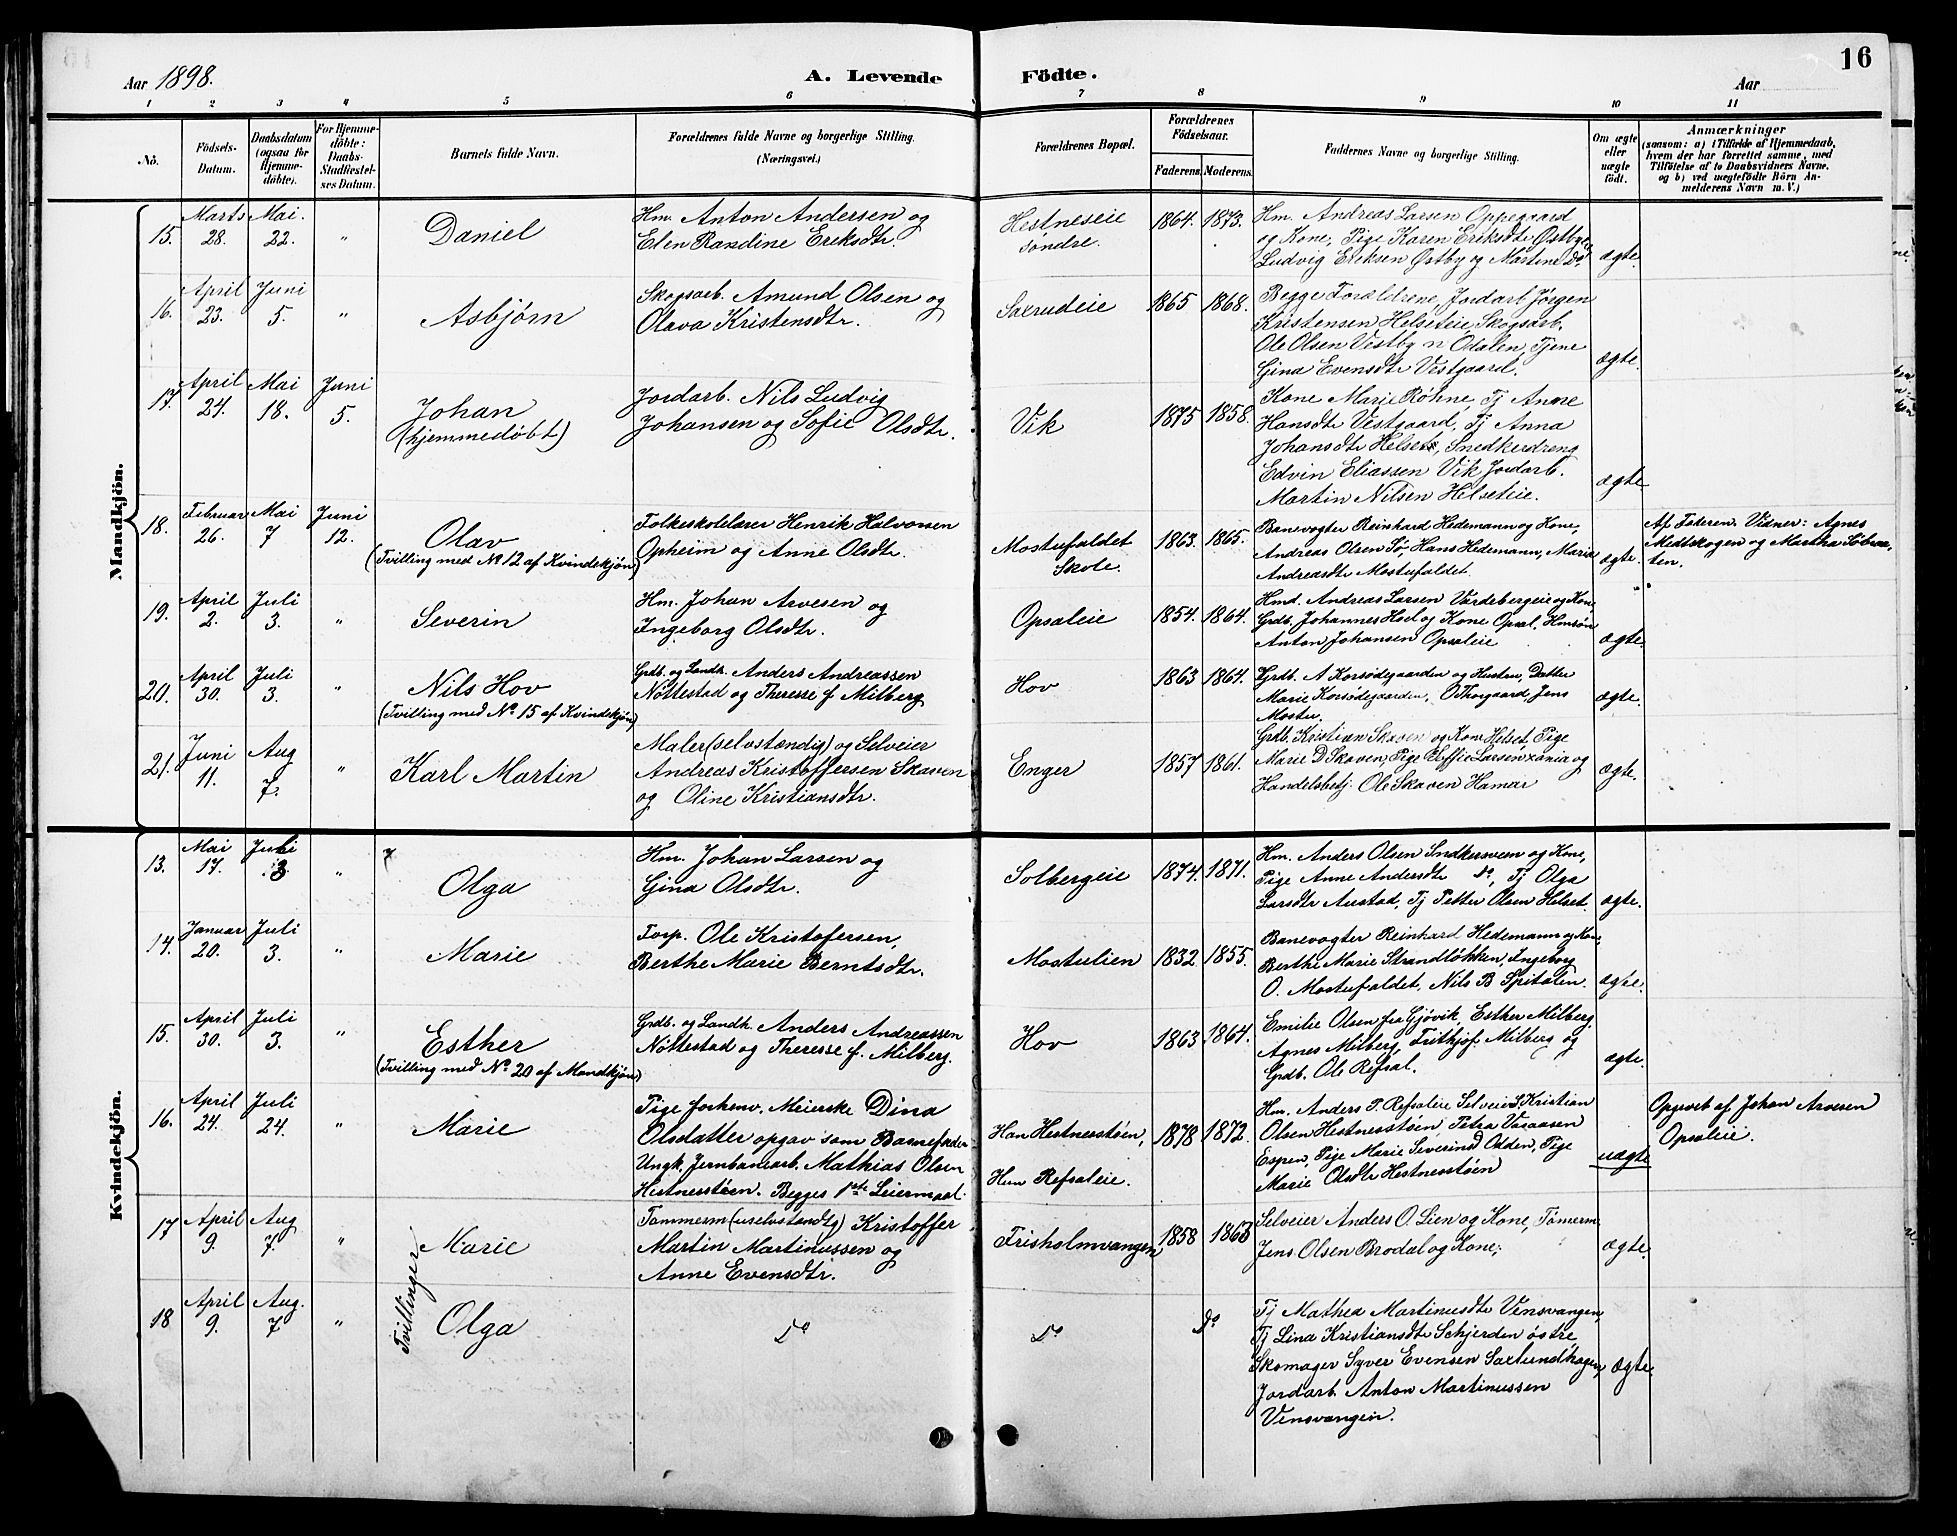 16
Aar 1898.
A. Levende Födte.
Aar
1 2 3 4 5 6 7 8 9 10 11
No.
Födsels-Datum.
Daabsdatum (ogsaa for Hjemme-döbte).
For Hjemme-döbte: Daabs-Stadfæstel-ses Datum.
Barnets fulde Navn.
Forældrenes fulde Navne og borgerlige Stilling. (Næringsvei.)
Forældrenes Bopæl.
Forældrenes Födselsaar.
Faderens. Moderens.
Faddernes Navne og borgerlige Stilling.
Om ægte eller uægte födt.
Anmærkninger
(saasom: a) i Tilfælde af Hjemmedaab,
hvem der har forrettet samme, med
Tilföielse af to Daabsvidners Navne,
og b) ved uægtefödte Börn An-
melderens Navn m. V.)
Mandkjön.
15. Marts 28. Mai. 22. "
Daniel
Hm. Anton Andersen og
Elen Randine Eriksdtr.
Hestneseie
søndre.
1864. 1873.
Hm. Andreas Larsen Oppegaard
og Kone, Pige Karen Eriksdtr Østbye
Ludvig Eriksen Østby og Martine Do.
ægte.
16. April 23. Juni 5. "
Asbjørn
Skogsarb. Amund Olsen og
Olava Kristensdtr.
Saxrudeie
1865 1868.
Begge Forældrene, Jordarb. Jørgen
Kristensen Helseteie, Skogsarb.
Ole Olsen Vestby n Odalen, Tjene
Gina Evensdtr Vestgaard.
ægte.
17. April 24. Mai 18. Juni 5.
Johan
(hjemmedøbt)
Jordarb. Nils Ludvig
Johansen og Sofie Olsdtr.
Vik
1875 1858.
Kone Marie Røhne, Tj Anne
Hansdtr Vestgaard, Tj Anna
Johansdtr Helset, Snedkerdreng
Edvin Eliassen Vik, Jordarb.
Martin Nilsen Helseteie.
ægte.
18. Februar 26. Mai 7 Juni 12.
Olav
(Tvilling med No 12 af Kvindekjøn)
Folkeskolelærer Henrik Halvorsen
Opheim og Anne Olsdtr.
Mostufaldet
Skole.
1863. 1865.
Banevogter Reinhard Hedemann og Kone,
Andreas Olsen Sø, Hans Hedemann, Marie
Andreasdtr Mostufaldet.
ægte.
Af Faderen. Vidner: Agnes
Medtskogen og Martha
ten.
19. April 2. Juli 3. "
Severin
Hm. Johan Arvesen og
Ingeborg Olsdtr.
Opsaleie
1854. 1864.
Hmd. Andreas Larsen Vardebergeie og Kone
Grdb. Johannes Hoel og Kone Opsal, Hmsøn
Anton Johansen Opsaleie
ægte.
20. April 30. Juli 3. "
Nils Hov
(Tvilling med No 15 af Kvindekjøn)
Grdb. og Landh. Anders Andreassen
Nøttestad og Therese f. Milberg
Hov
1863 1864.
Grdb. A Korsødegaarden og Hustru, Datter
Marie Korsødegaarden, O Thorgaard, Jens
Moster.
ægte.
21. Juni 11. Aug 7. "
Karl Martin
Maler (selvstændig) og Selveier
Andreas Kristoffersen Skaven
og Oline Kristiansdtr.
Enger
1857 1861.
Grdb. Kristian Skaven og Kone Helset, Pige
Marie D Skaven, Pige Soffie Larsen xania og
Handelsbetj. Ole Skaven Hamar
ægte.
Kvindekjön.
13. Mai 17. Juli 3 "
Olga
Hm. Johan Larsen og
Gina Olsdtr.
Solbergeie
1874. 1871.
Hm. Anders Olsen Sndkersveen og Kone,
Pige Anne Andersdtr Do, Tj Olga
Larsdtr Austad, Tj Petter Olsen Helset.
ægte.
14. Januar 20. Juli 3. "
Marie
Torp. Ole Kristofersen,
Berthe Marie Berntsdtr.
Mostulien
1832 1855.
Banevogter Reinhard Hedemann og Kone,
Berthe Marie Strandløkken, Ingeborg
O. Mostufaldet, Nils B Spitalen.
ægte.
15. April 30. Juli 3. "
Esther
(Tvilling med No 20 af Mandkjøn)
Grdb. og Landh. Anders Andreassen
Nøttestad og Therese f. Milberg.
Hov
1863 1864.
Emilie Olsen fra Gjøvik, Esther Milberg,
Agnes Milberg, Frithjof Milberg og
Grdb. Ole Refsal.
ægte.
16. April 24. Juli 24. "
Marie
Pige forhenv. Meierske Dina
Olsdatter opgav som Barnefader
Ungk. Jernbanearb. Mathias Olsen
Hestnesstøen. Begges 1ste Leiermaal.
Han Hestnesstøen,
Hun Refsaleie.
1878 1872.
Hm. Anders P. Refsaleie Selveier Kristian
Olsen Hestnesstøen, Petra
Espen, Pige Marie Severinsd Odden, Pige
Marie Olsdtr Hestnesstøen
uægte
Opgivet af Johan Arvesen
Opsaleie.
17 April 9. Aug 7. "
Tvillinger
Marie
Tømmerm (uselvstændtg) Kristoffer
Martin Martinussen og
Anne Evensdtr.
Frisholmvangen
1858 1863
Selveier Anders O. Lien og Kone, Tømerm
Jens Olsen Brodal og Kone;
ægte.
18 April 9. Aug. 7 "
Olga
Do
Do
Do
Tj Mathea Martinusdtr Vensvangen,
Tj Lina Kristiansdtr Schjerden østre
Skomager Syver Evensen Saxlundhagen,
Jordarb. Anton Martinussen
Vensvangen.
ægte.